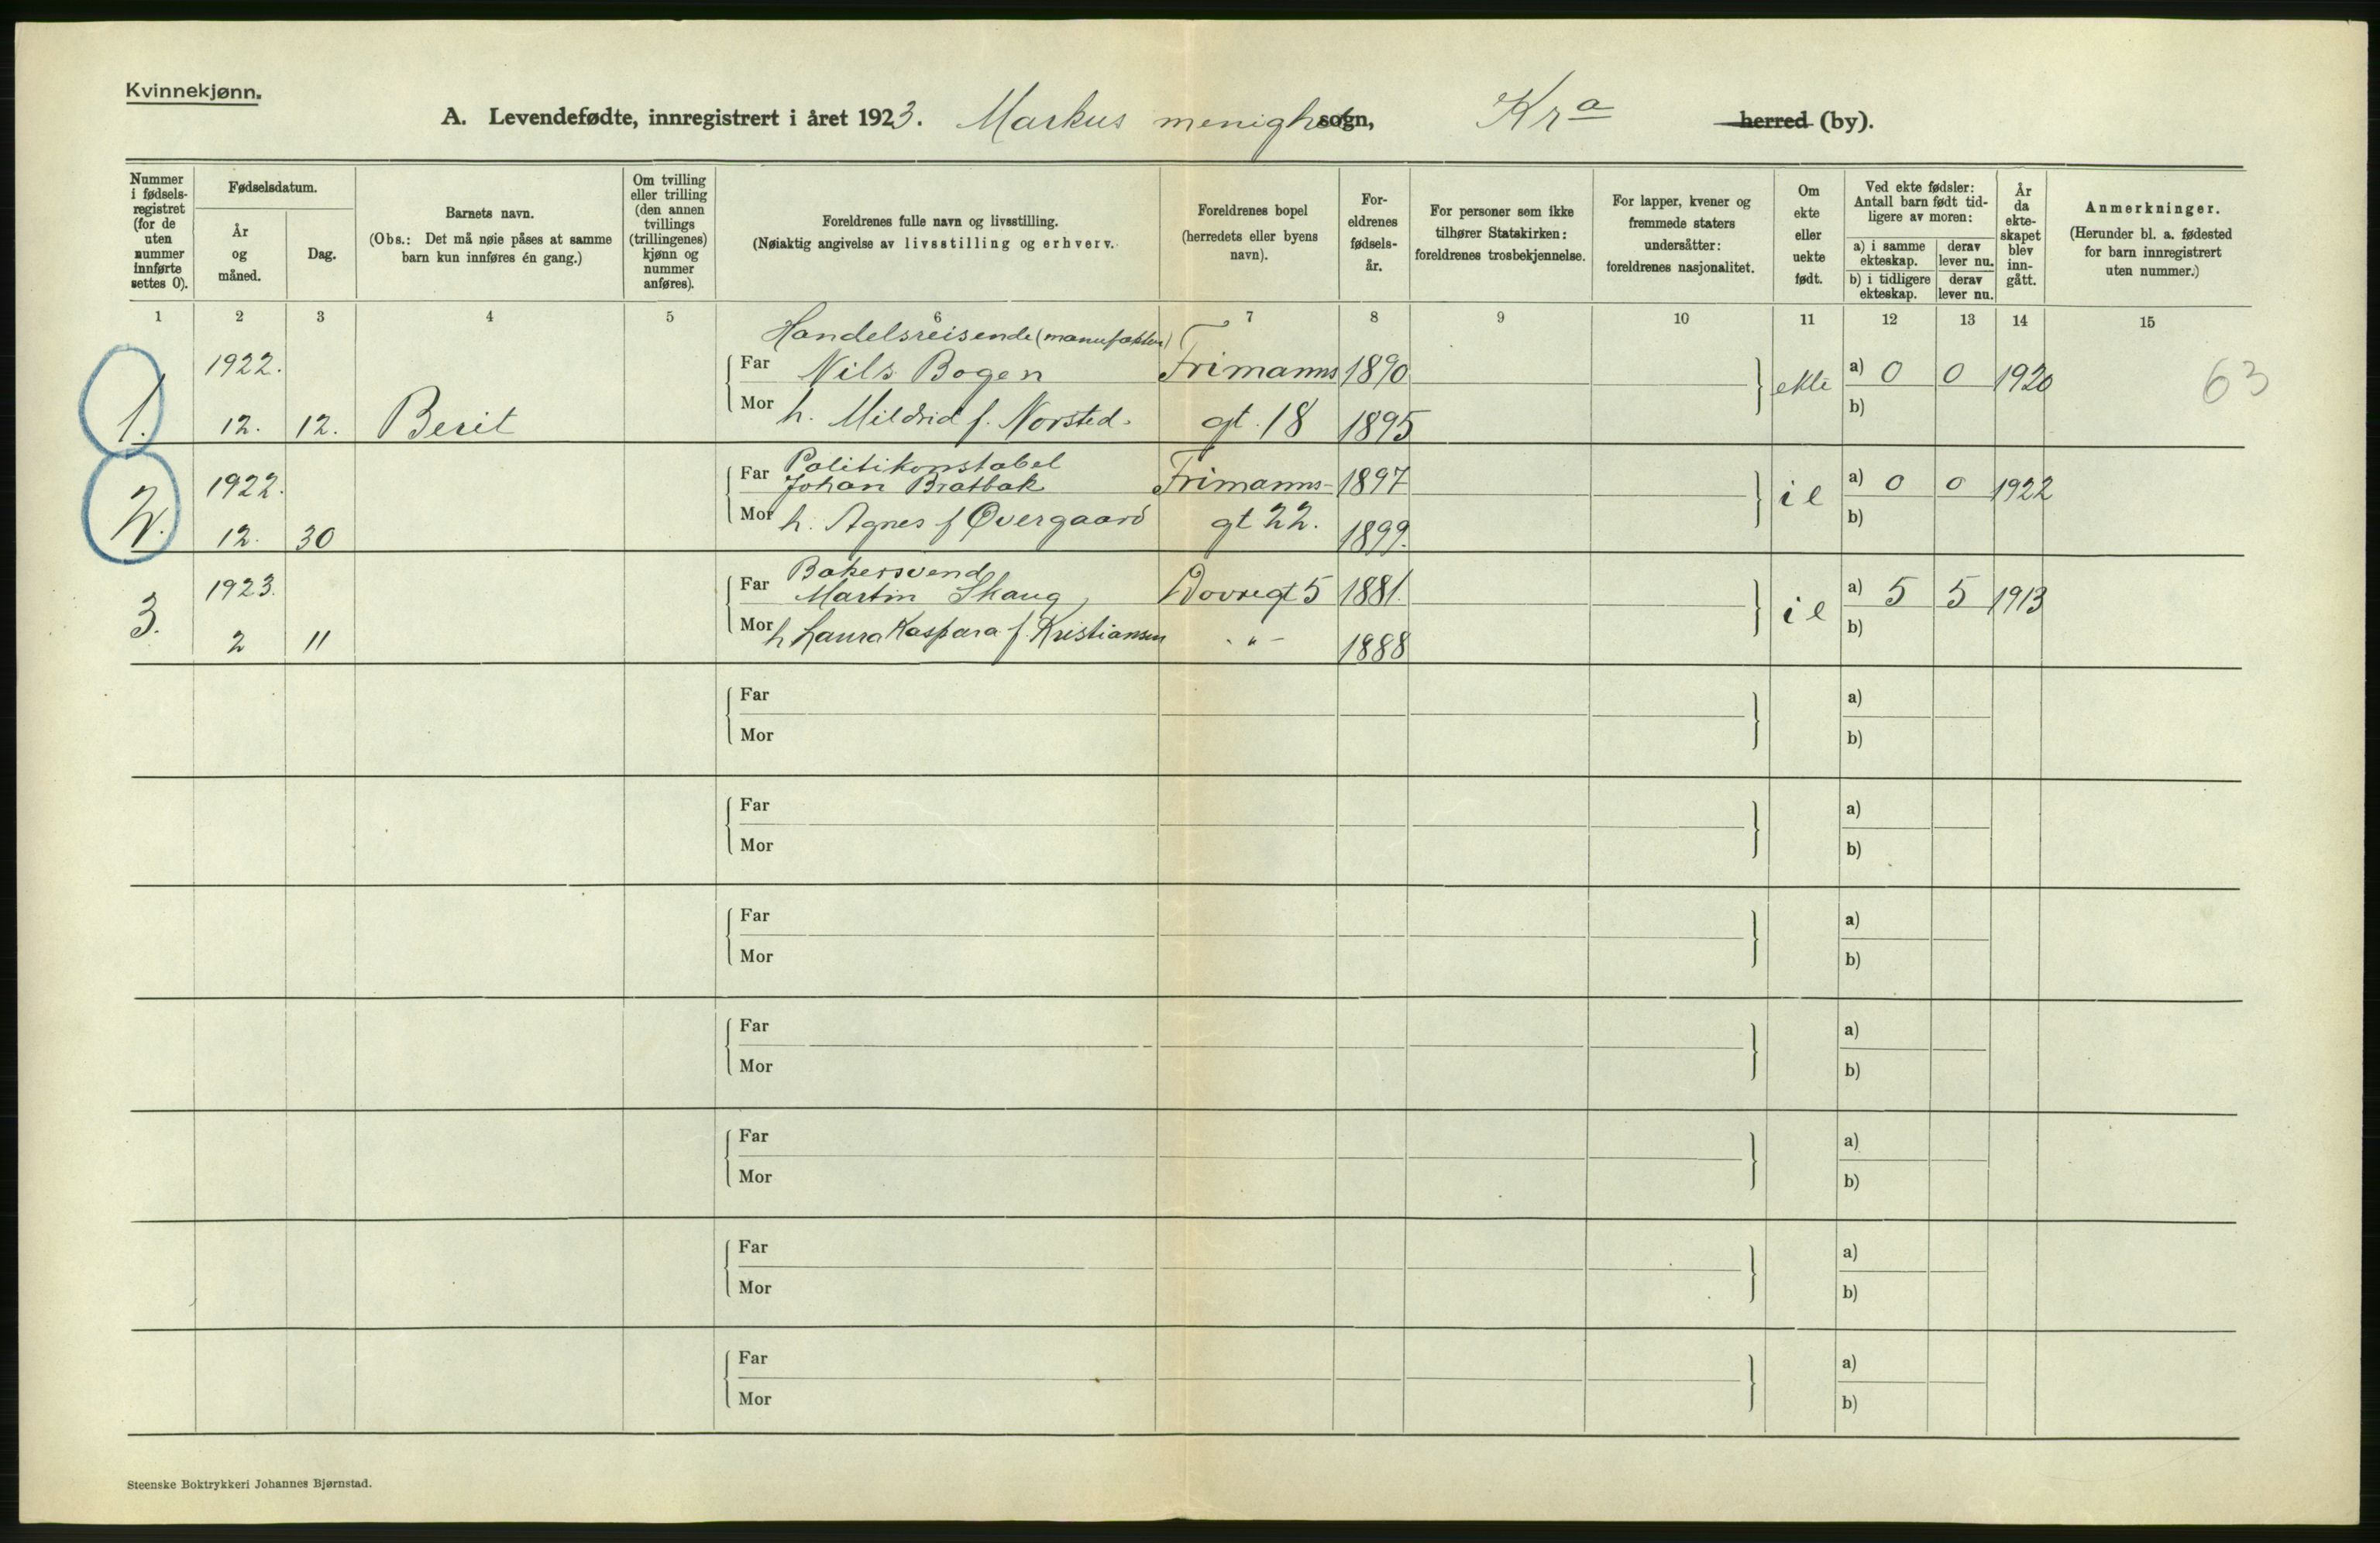 Kvinnekjønn.
A. Levendefødte, innregistrert i året 1923. Markus menighet sogn, Kra herred (by).
Nummer i fødsels-registret (for de uten nummer innførte settes 0).
Fødselsdatum.
År og måned.
Dag.
Barnets navn.
(Obs.: Det må nøie påses at samme barn kun innføres én gang.)
Om tvilling eller trilling (den annen tvillings (trillingenes) kjønn og nummer anføres).
Foreldrenes fulle navn og livsstilling.
(Nøiaktig angivelse av livsstilling og erhverv.)
Foreldrenes bopel (herredets eller byens navn).
For-eldrenes fødsels-år.
For personer som ikke tilhører Statskirken: foreldrenes trosbekjennelse.
For lapper, kvener og fremmede staters undersåtter: foreldrenes nasjonalitet.
Om ekte eller uekte født.
Ved ekte fødsler: Antall barn født tid-ligere av moren:
a) i samme ekteskap.
derav lever nu.
b) i tidligere ekteskap.
derav lever nu.
År da ekte-skapet blev inn-gått.
Anmerkninger.
(Herunder bl. a. fødested for barn innregistrert uten nummer.)
1 2 3 4 5 6 7 8 9 10 11 12 13 14 15
Handelsreisende (manufaktur)
1922. Far Nils Bogen Frimanns 1890 ekte a) 0 0 1920 63
1. 12. 12. Berit Mor h. Mildrid f. Norsted. gt. 18 1895 b)
Politikonstabel
1922. Far Johan Bratbak Frimanns- 1897 i e a) 0 0 1922
2. 12. 30 Mor h. Agnes f Øvergaard gt 22. 1899. b)
Bakersvend
1923. Far Martin Skaug Dovregt 5 1881. i e a) 5 5 1913
3. 2 11 Mor h Laura Kaspara f. Kristiansen - " - 1888 b)
Far a)
Mor b)
Far a)
Mor b)
Far a)
Mor b)
Far a)
Mor b)
Far a)
Mor b)
Far a)
Mor b)
Far a)
Mor b)
Steenske Boktrykkeri Johannes Bjørnstad.